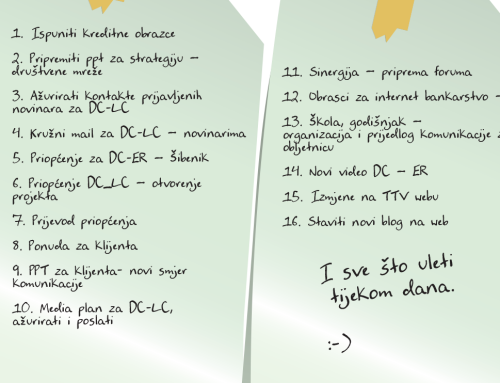 1. Ispuniti kreditne obrazce
2. Pripremiti ppt za strategiju –
društvene mreže
3. Ažurirati kontakte prijavljenih
novinara za DC-LC
4. Kružni mail za DC-LC – novinarima
5. Priopćenje za DC-ER – Šibenik
6. Priopćenje DC_LC – otvorenje
projekta
7. Prijevod priopćenja
8. Ponuda za klijenta
9. PPT za klijenta- novi smjer
komunikacije
10. Media plan za DC-LC,
ažurirati i poslati
11. Sinergija – priprema foruma
12. Obrasci za internet bankarstvo –
13. Škola, godišnjak –
organizacija i prijedlog komunikacije z
obljetnicu
14. Novi video DC – ER
15. Izmjene na TTV webu
16. Staviti novi blog na web
I sve što uleti
tijekom dana.
:-)